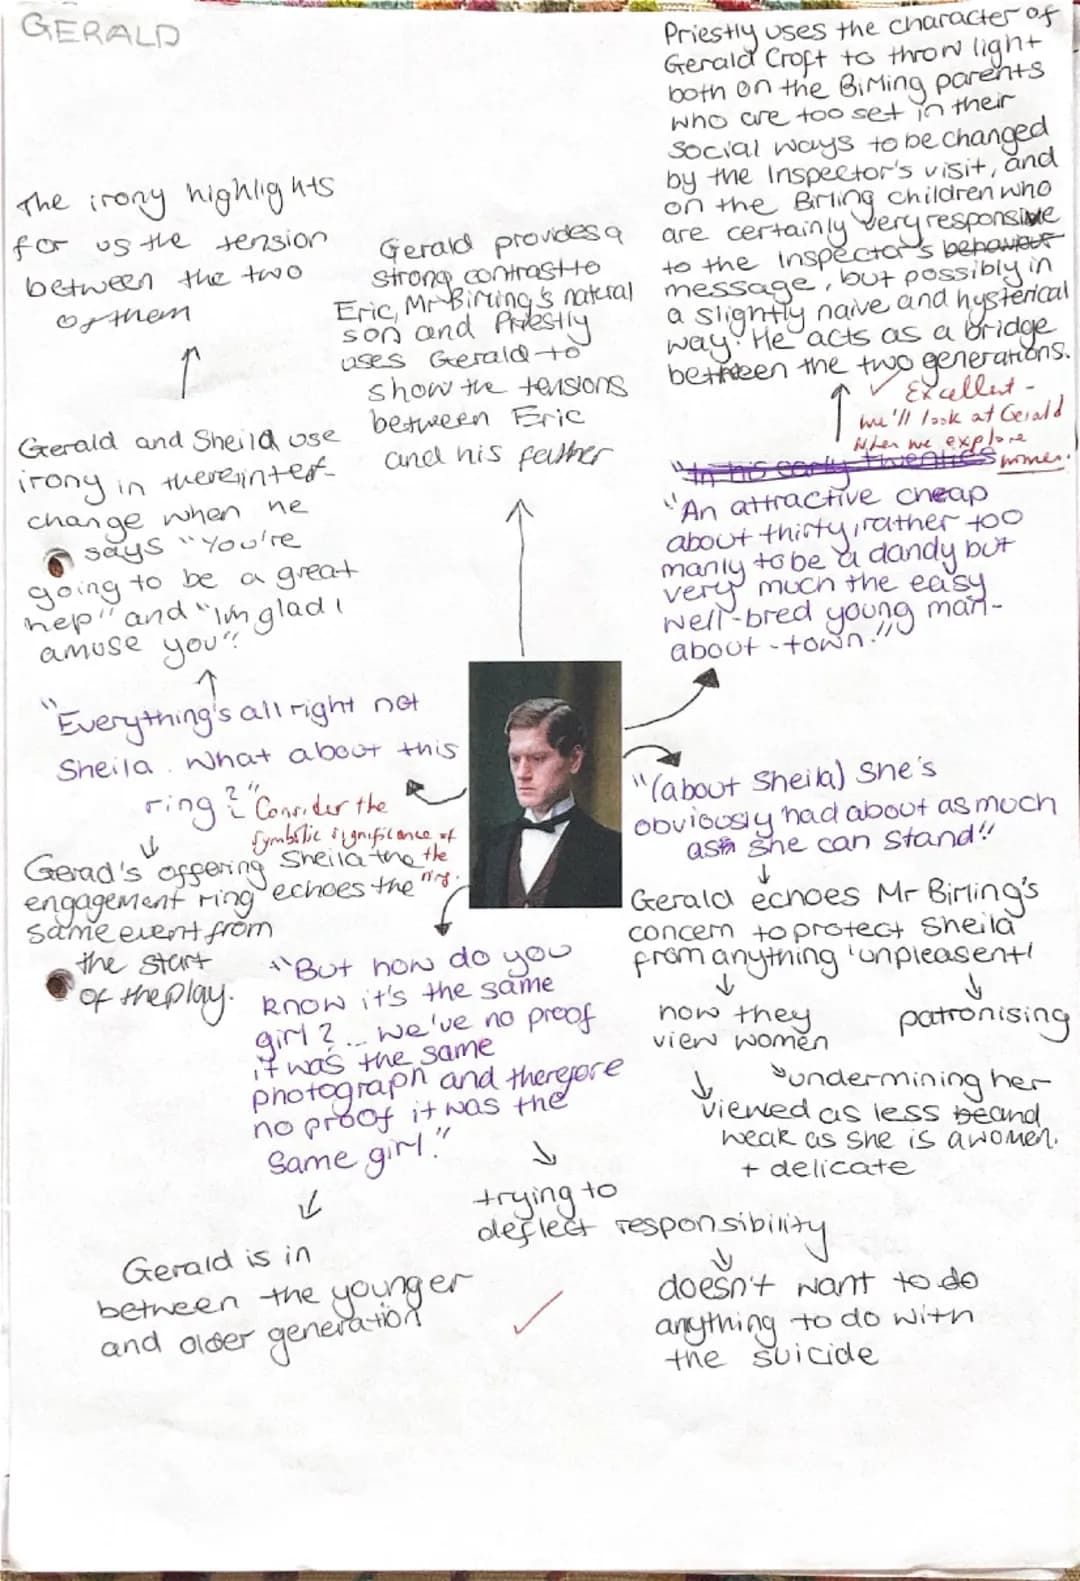 GERALD
Priestly uses the character of
Gerald Croft to throw light
both on the Birling parents
who are too set in their
social ways to be changed
by the Inspector's visit, and
on the Birling children who
are certainly very responsive
to the Inspector's behaviour
message, but possibly in
a slightly naive and hysterical
way. He acts as a bridge
between the two generations.
Excellent -
we'll look at Gerald
when we explore
women.
"In his early twenties
"An attractive cheap
about thirty, rather too
manly to be a dandy but
very much the easy
well-bred young man-
about-town."
The irony highlights
for us the tension
between the two
of them
Gerald and Sheila use
irony in there interf-
change when he
says "You're
going to be a great
help" and "Im glad I
amuse you".
Gerald provides a
strong contrast to
Eric, Mr Birling's natural
son and Priestly
uses Gerald to
show the tensions
between Eric
and his father
"Everything's all right not
Sheila. What about this
ring?"
Consider the
symbolic significance of
the
ring.
Gerad's offering Sheila the
engagement ring echoes the
same event from
the start
of the play.
"(about Sheila) She's
obviously had about as much
as she can stand"
Gerald echoes Mr Birling's
concern to protect Sheila
from anything 'unpleasent'
how they
view women
patronising
undermining her
viewed as less be and
weak as she is a women.
+ delicate
"But how do you
know it's the same
girl? ... we've no proof
it was the same
photograph and therefore
no proof it was the
same girl."
trying to
deflect responsibility
doesn't want to do
anything to do with
the suicide
Gerald is in
between the younger
and older generation